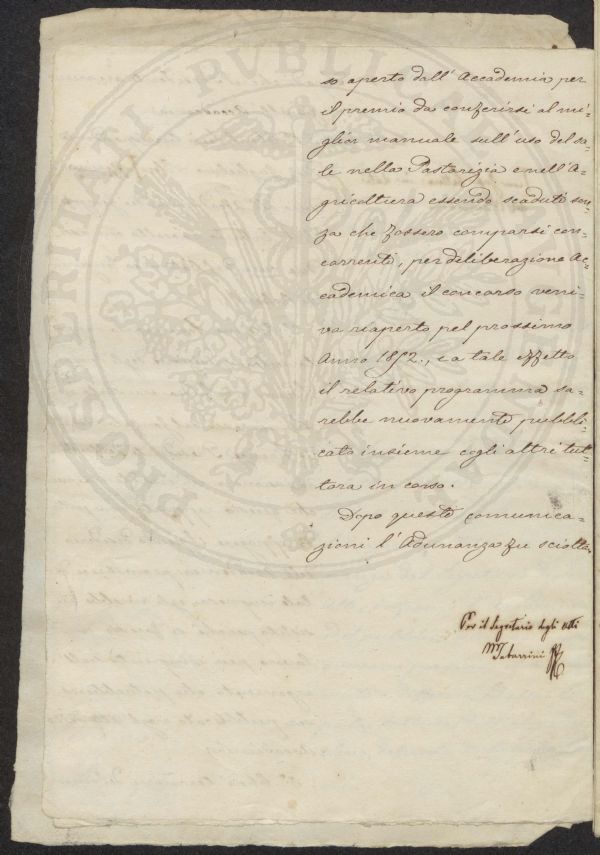 so aperto dall'Accademia per
il premio da conferirsi al mi-
glior manuale sull'uso del sa-
le nella Pastorizia e nell'A-
gricoltura essendo scaduto sen-
za che fossero comparsi con-
correnti, per deliberazione Ac-
cademica il concorso veni-
va riaperto pel prossimo
Anno 1852., e a tale effetto
il relativo programma sa-
rebbe nuovamente pubbli-
cato insieme cogli altri tut-
tora in corso.
Dopo queste comunica-
zioni l'Adunanza fu sciolta.
Per il Segretario degli Atti
M Tabarrini
PROSPERITATI PUBLICAE